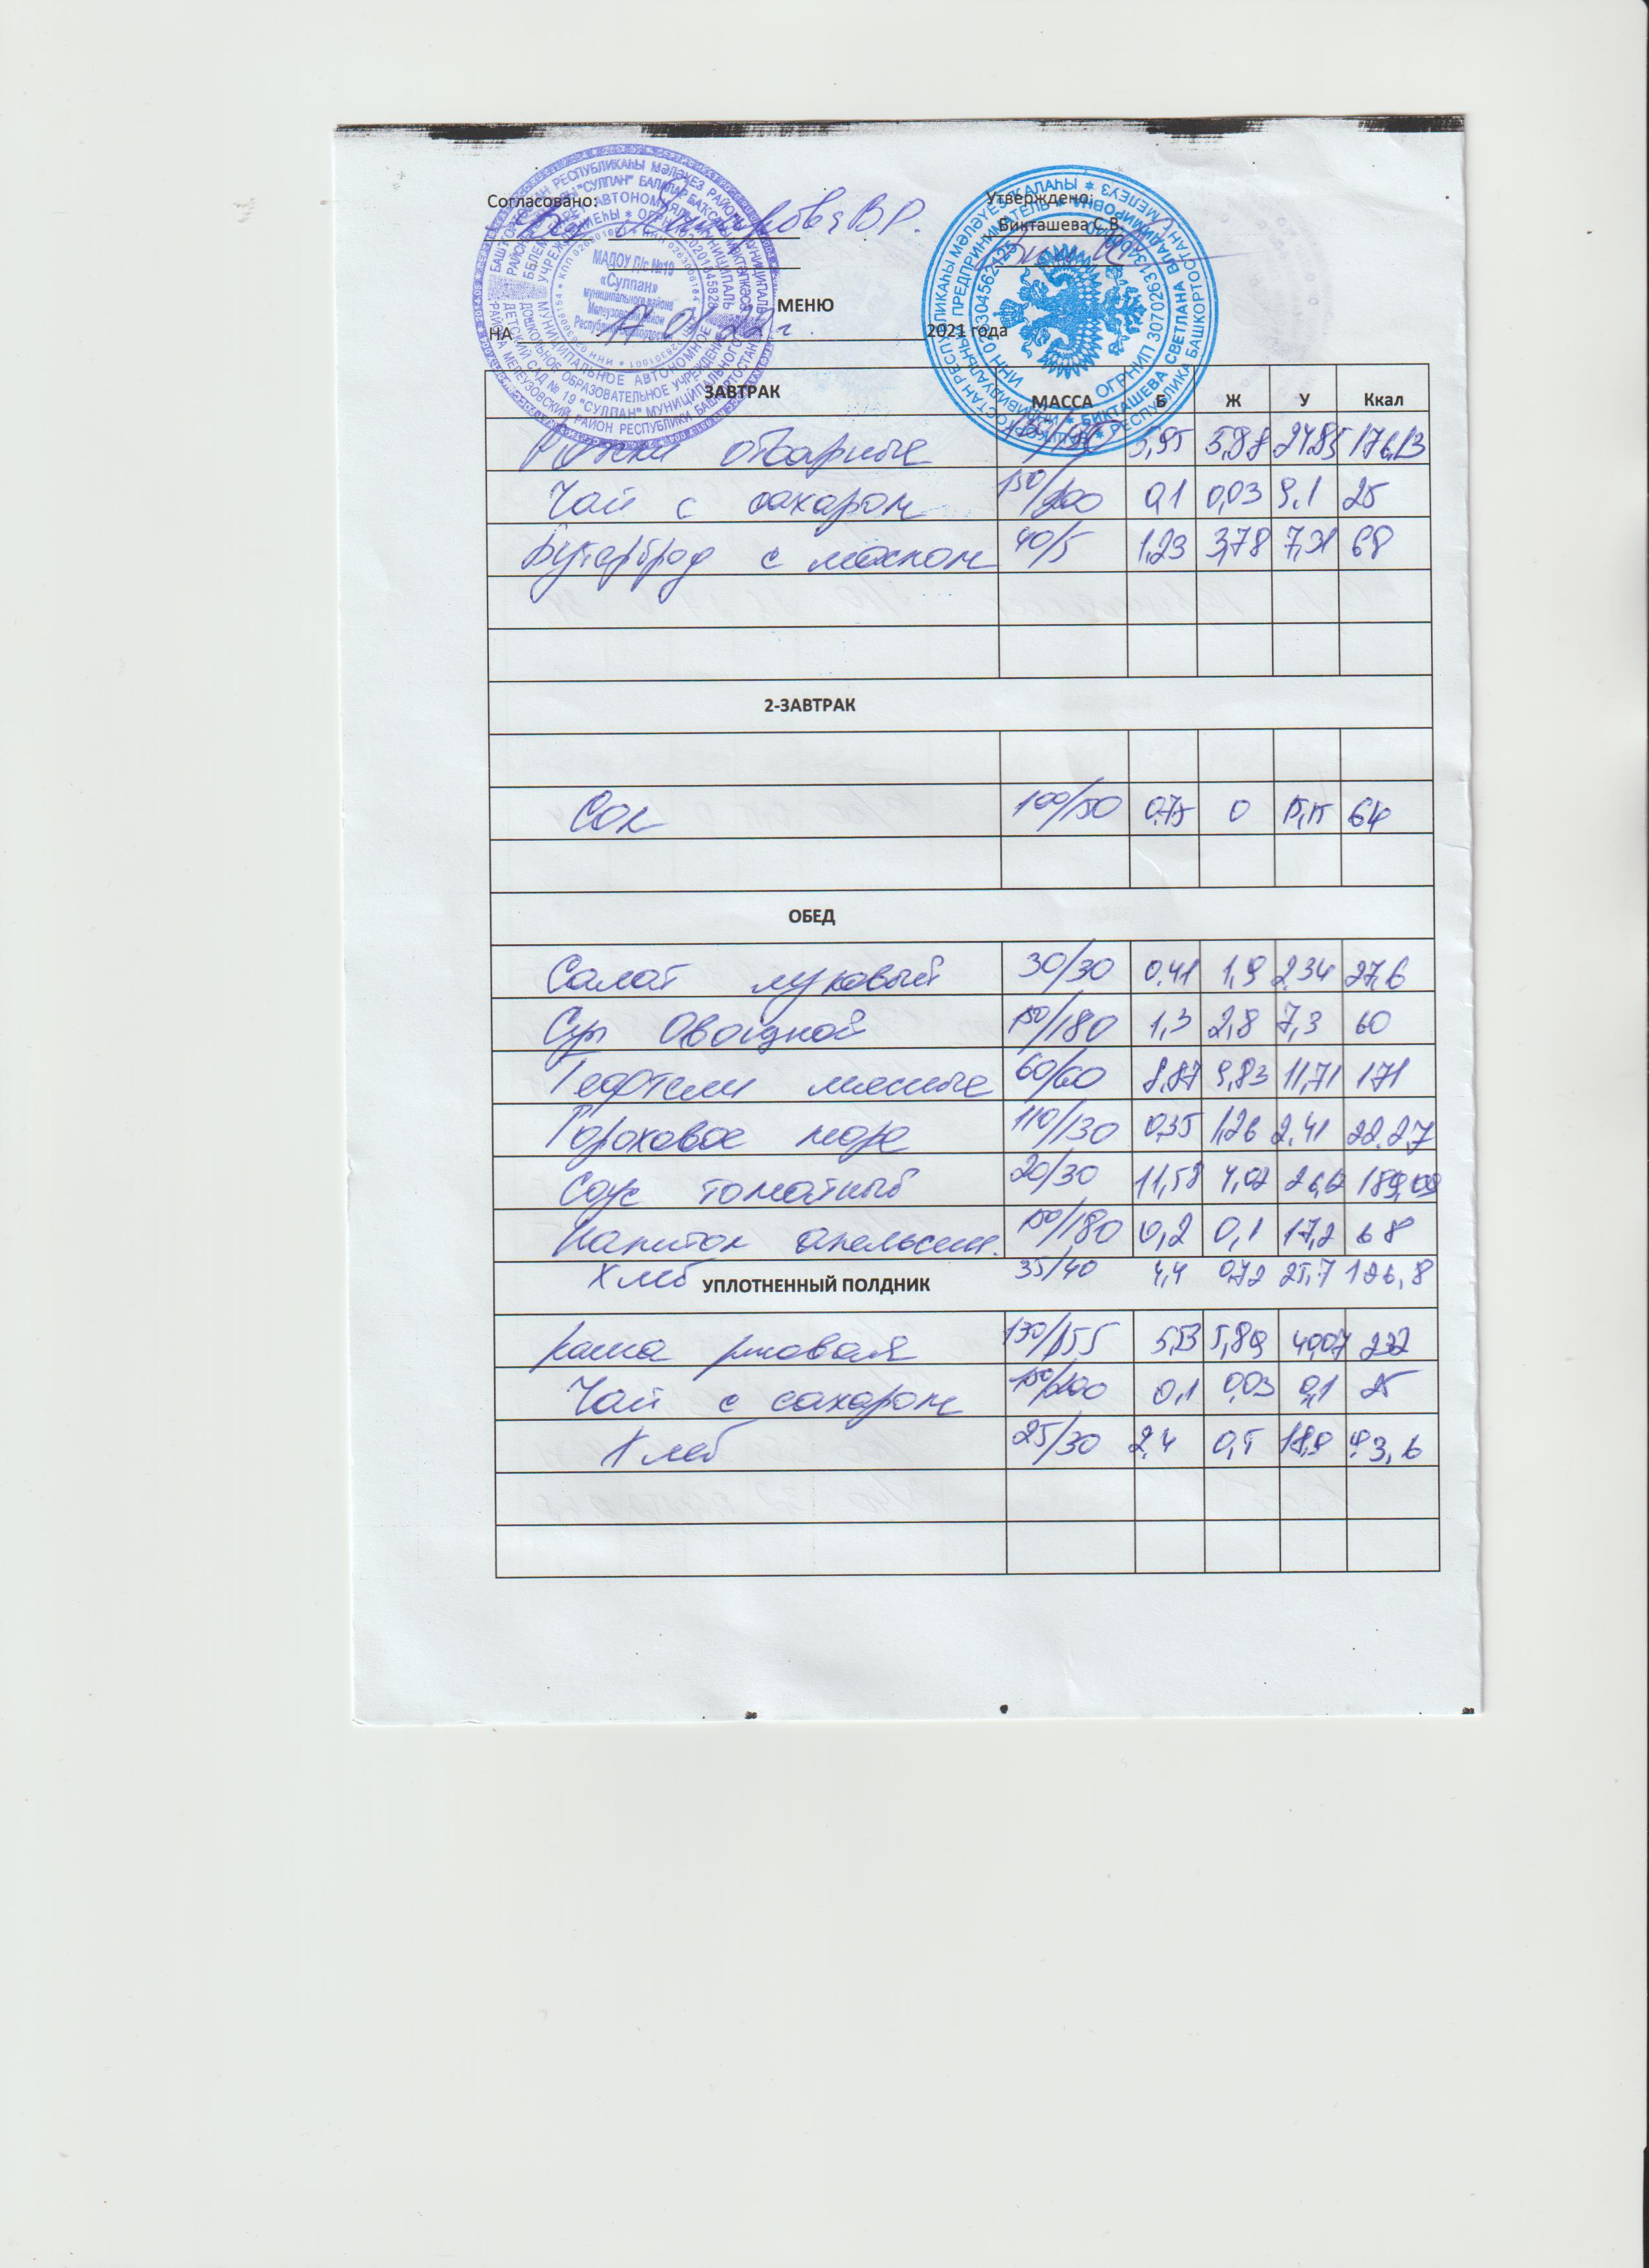 Согласовано:
Утверждено:
Бикташева С.В.
МАДОУ Д/с №19
«Сулпан»
муниципального района
Мелеузовский район
Республики Башкортостан
МЕНЮ
НА 2021 года
ЗАВТРАК МАССА Б Ж У Ккал
Рожки отварные 5,95 5,88 24.85 176,13
Чай с сахаром 150/200 0,1 0,03 9,1 25
Бутерброд с маслом 40/5 1,23 3,78 7,31 68
2-ЗАВТРАК
Сок 100/150 0.75 0 15,15 64
ОБЕД
Салат луковый 30/30 0.41 1,9 2.34 27,6
Суп Овощной 150/180 1,3 2,8 7,3 60
Тефтели мясные 60/60 8,87 9,83 11,71 171
Гороховое пюре 110/130 0.35 1,26 2.41 22.27
Соус томатный 20/30 11,58 4,02 26,2 189,09
Напиток апельсин. 150/180 0,2 0,1 17,2 68
Хлеб 35/40 4,4 0.72 25,7 126,8
УПЛОТНЕННЫЙ ПОЛДНИК
Каша рисовая 130/155 5,53 5,89 40,07 232
Чай с сахаром 150/200 0,1 0,03 9,1 25
Хлеб 25/30 2.4 0,5 18,9 93,6